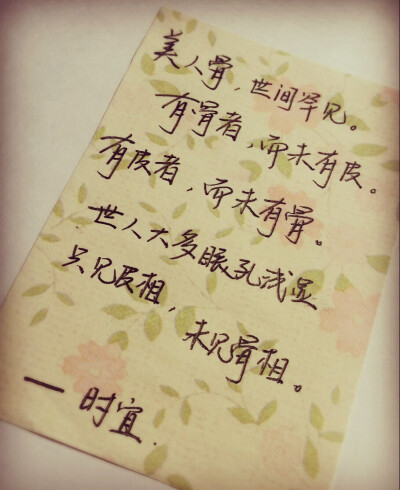 美人骨，世间罕见。
有骨者，而未有皮。
有皮者，而未有骨。
世人大多眼孔浅显
只见皮相，
未见骨相。
— 时宜